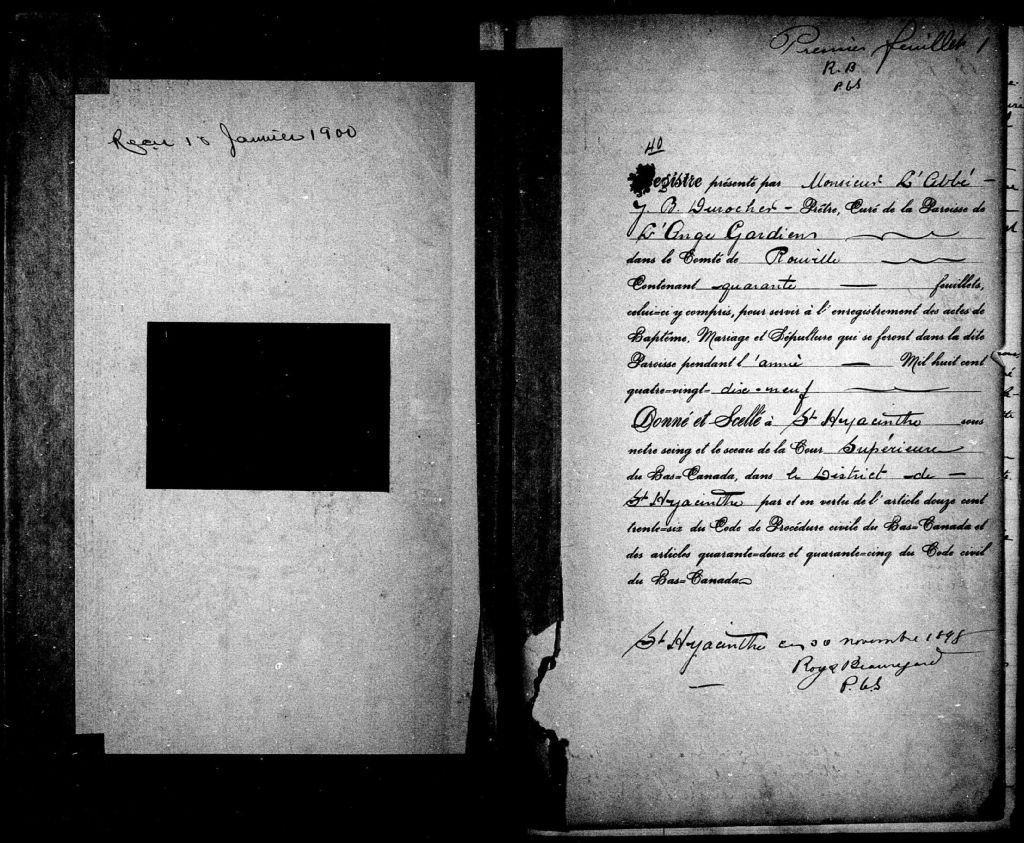 Reçu 18 Janvier 1900
Premier feuillet 1
R. B
P.C.S
40
Registre présenté par Monsieur L'Abbé
J. B. Durocher - Prêtre, Curé de la Paroisse de
L'Ange Gardien
dans le Comté de Rouville
Contenant quarante feuillets,
celui-ci y compris, pour servir à l'enregistrement des actes de
Baptême, Mariage et Sépulture qui se feront dans la dite
Paroisse pendant l'année Mil huit cent
quatre-vingt-dix-neuf
Donné et Scellé à St Hyacinthe sous
notre seing et le sceau de la Cour Supérieure
du Bas-Canada, dans le District de
St Hyacinthe par et en vertu de l'article douze cent
trente-six du Code de Procédure civile du Bas-Canada et
des articles quarante-deux et quarante-cinq du Code civil
du Bas-Canada
St Hyacinthe ce 30 novembre 1898
Roy & Beauregard
P.C.S